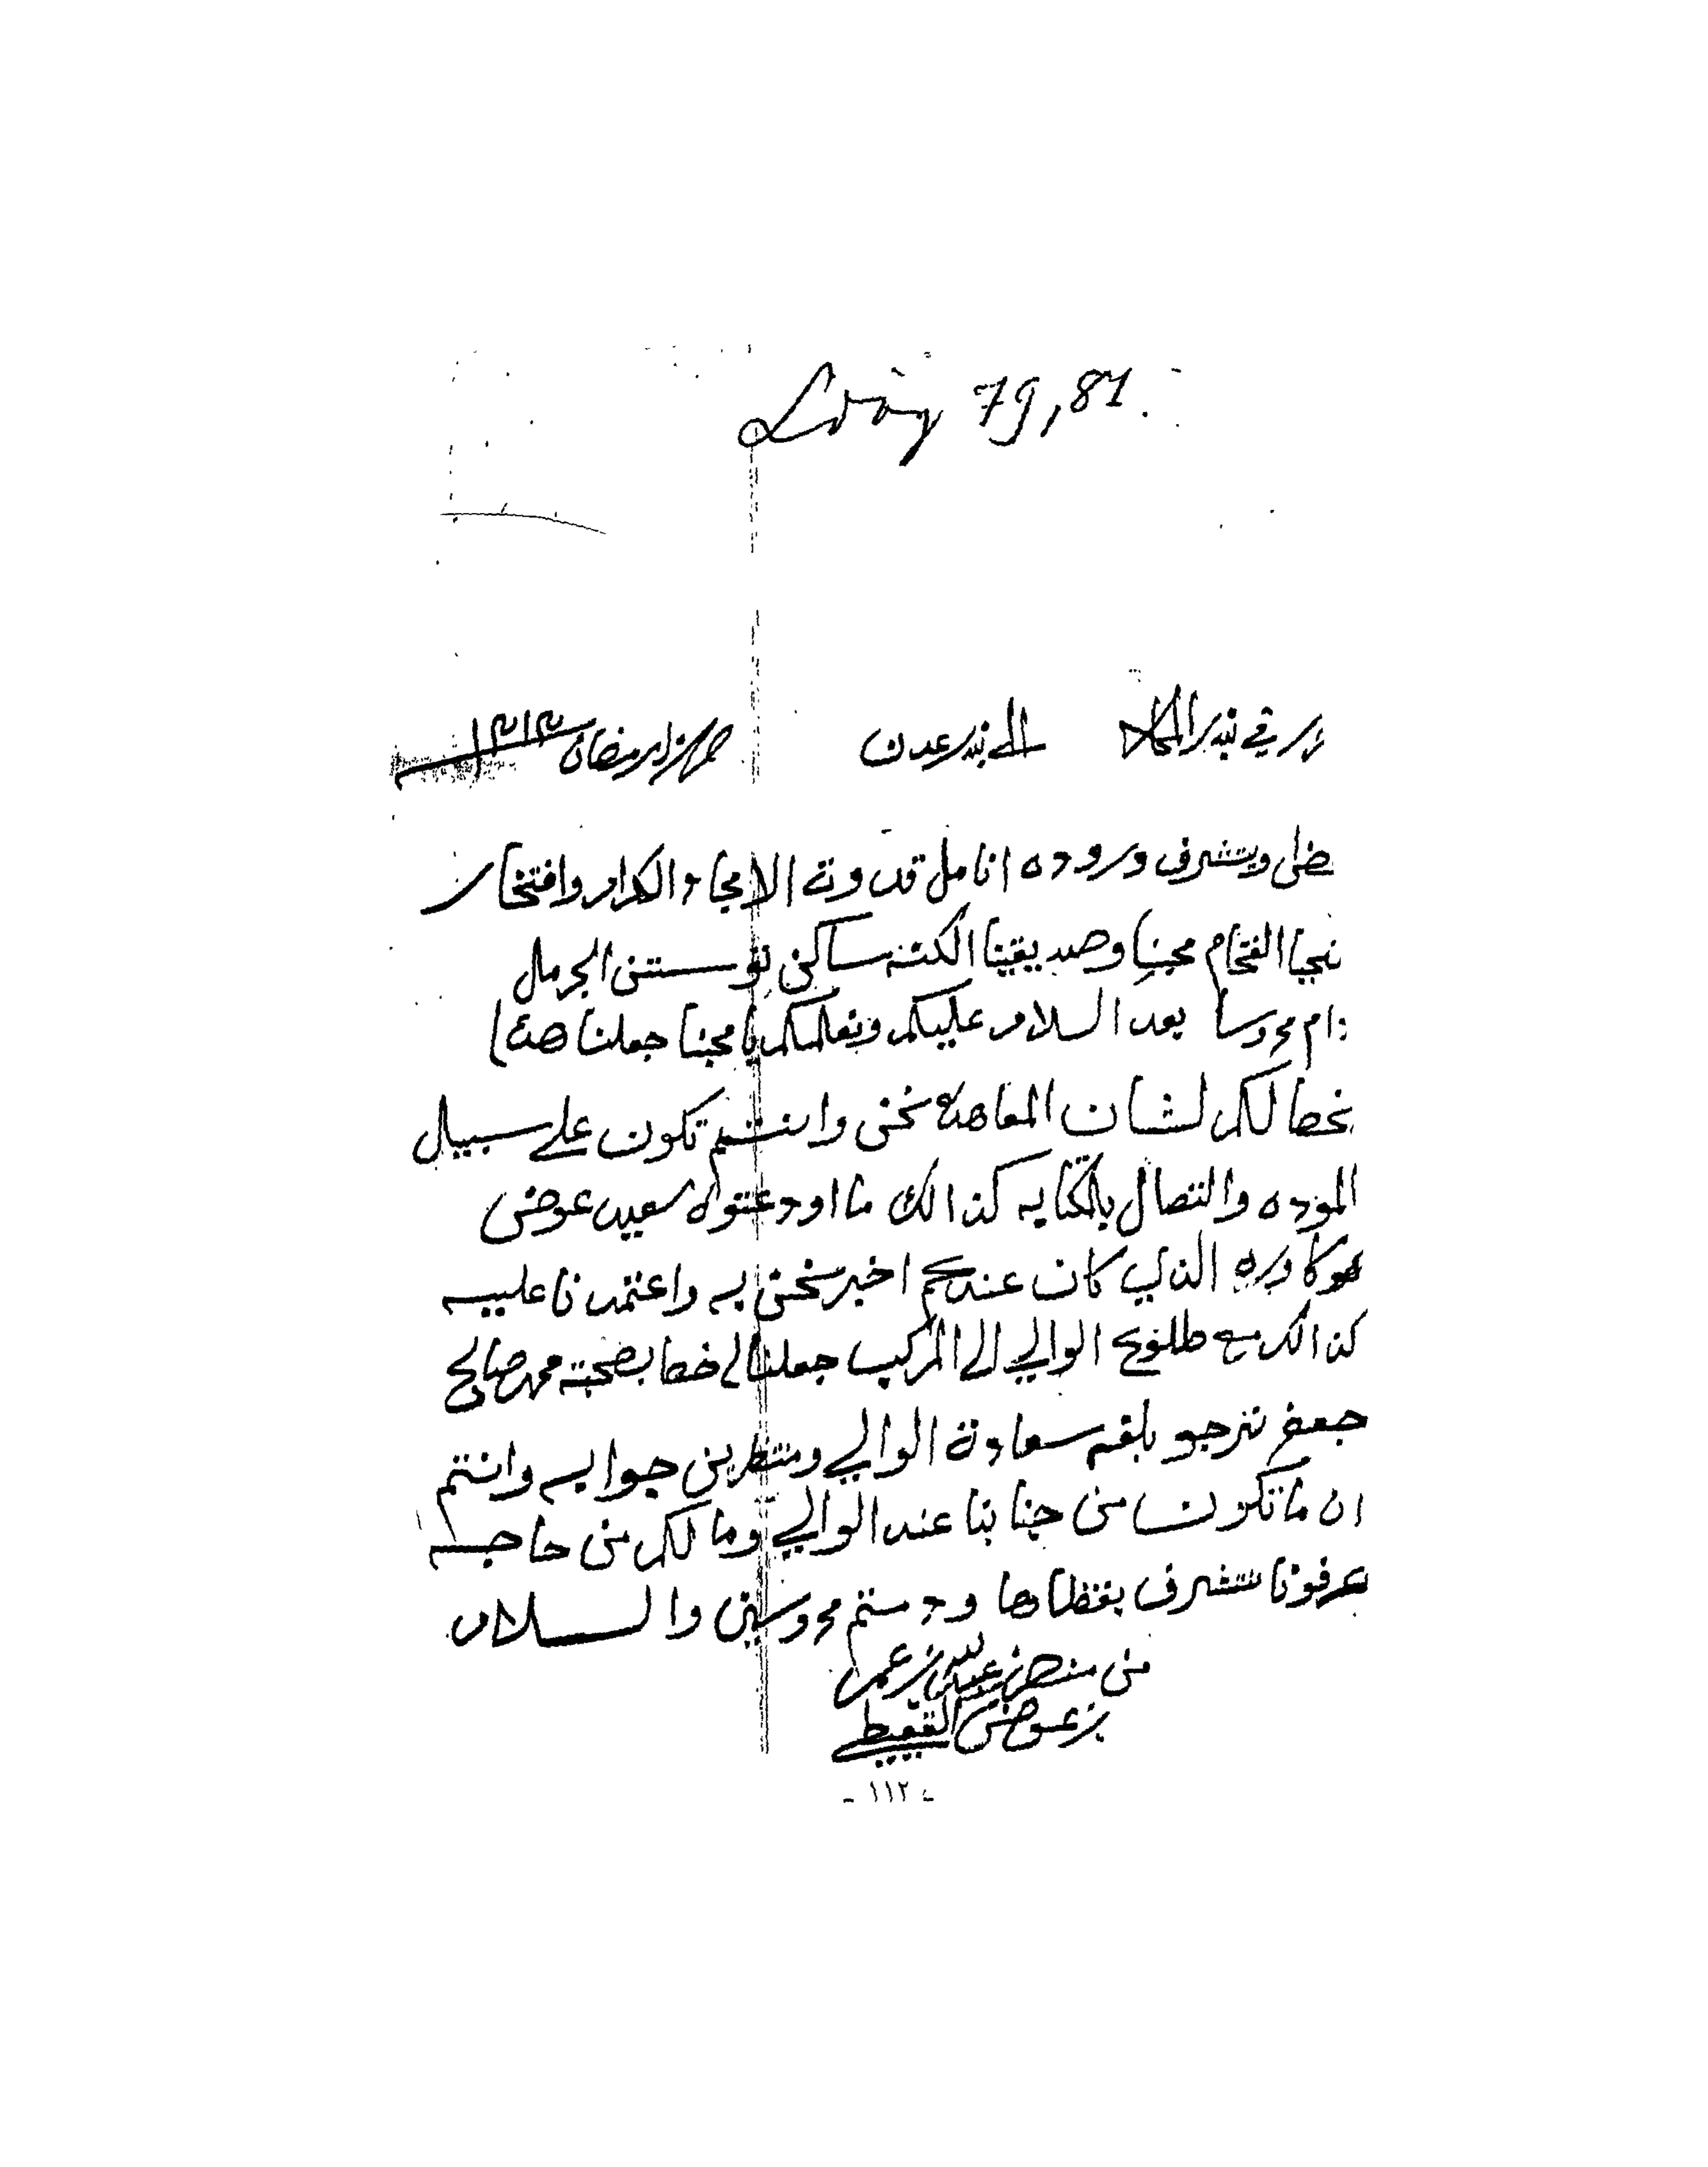 79, 81.
في بندر المكلا الى بندر عدن شهر رمضان ١٣١٣
يحظى ويتشرف وروده انامل قدوة الامجاد الكرام وافتخار
الفخام محبنا وصديقينا الكته ساكن الجرمل
دام محروسا بعد السلام عليكم ونعلمكم يا محبنا جعلنا هذا
خطا لكم لشان المعاهده نحن وانتم تكون على سبيل
الموده والتصال بالكتابه كذالك ما اودعتوه سعيد عوض
الذي كان عندكم اخبر نحن به واعتمدنا عليه
كذالك مع طلوع الوالي الى المركب جعلنا لي خط بصحبة محمد صالح
جعفر نترجو بلغه سعادة الوالي ومنتظرين جوابه وانتم
ان ما تكون من جنابنا عند الوالي وما لكم من حاجه
عرفونا نتشرف بقظاها ودمتم محروسين والسلام
من منصر بن عبدالله بن عمر
بن عوض القعيطي
- ١١٢ -